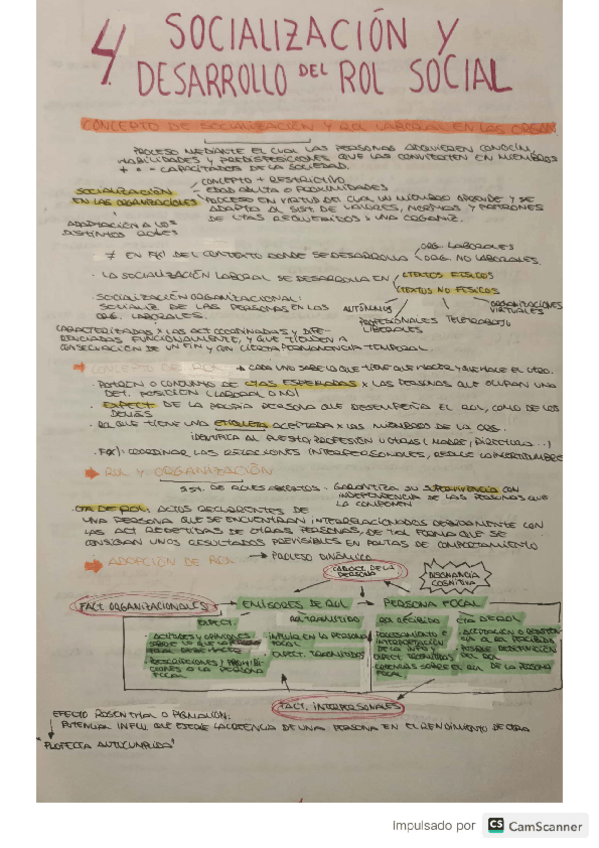 4. SOCIALIZACIÓN Y
DESARROLLO DEL ROL SOCIAL
CONCEPTO DE SOCIALIZACIÓN Y ROL LABORAL EN LAS ORGAN.
PROCESO MEDIANTE EL CUAL LAS PERSONAS ADQUIEREN CONOCIM.
HABILIDADES Y PREDISPOSICIONES QUE LAS CONVIERTEN EN MIEMBROS
+ o - CAPACITADOS DE LA SOCIEDAD.
SOCIALIZACIÓN
EN LAS ORGANIZACIONES
CONCEPTO + RESTRICTIVO.
EDAD ADULTA O PROXIMIDADES
PROCESO EN VIRTUD DEL CUAL UN MIEMBRO APRENDE Y SE
ADAPTA AL SIST. DE VALORES, NORMAS Y PATRONES
DE CTAS REQUERIDOS X UNA ORGANIZ.
ADAPTACIÓN A LOS
DISTINTOS ROLES
≠ EN F(X) DEL CONTEXTO DONDE SE DESARROLLA
ORG. LABORALES
ORG. NO LABORALES.
· LA SOCIALIZACIÓN LABORAL SE DESARROLLA EN
CTEXTOS FISICOS
CTEXTOS NO FISICOS
· SOCIALIZACIÓN ORGANIZACIONAL:
SOCIALIZ. DE LAS PERSONAS EN LAS
ORG. LABORALES.
AUTÓNOMOS
PROFESIONALES LIBERALES
TELETRABAJO
ORGANIZACIONES VIRTUALES
CARACTERIZADAS X LAS ACT COORDINADAS Y DIFE-
RENCIADAS FUNCIONALMENTE, Y QUE TIENDEN A
CONSECUCIÓN DE UN FIN Y CON CIERTA PERMANENCIA TEMPORAL.
CONCEPTO DE ROL → CADA UNO SABE LO QUE TIENE QUE HACER Y QUE HACE EL OTRO.
· PATRÓN O CONJUNTO DE CTAS ESPERADAS X LAS PERSONAS QUE OCUPAN UNA
DET. POSICIÓN (LABORAL O NO)
· EXPECT DE LA PROPIA PERSONA QUE DESEMPEÑA EL ROL, COMO DE LOS
DEMÁS
· ROL QUE TIENE UNA ETIQUETA ACEPTADA X LOS MIEMBROS DE LA ORG.
IDENTIFICA AL PUESTO, PROFESIÓN U OTRAS (MADRE, DIRECTORA...)
· F(X): COORDINAR LAS RELACIONES INTERPERSONALES, REDUCE LA INCERTIDUMBRE
ROL Y ORGANIZACIÓN
SIST. DE ROLES ABIERTOS. GARANTIZA SU SUPERVIVENCIA CON
INDEPENDENCIA DE LAS PERSONAS QUE
LA COMPONEN
· CTA DE ROL: ACTOS RECURRENTES DE
UNA PERSONA QUE SE ENCUENTRAN INTERRELACIONADOS DEBIDAMENTE CON
LAS ACT REPETIDAS DE OTRAS PERSONAS, DE TAL FORMA QUE SE
CONSIGAN UNOS RESULTADOS PREVISIBLES EN PAUTAS DE COMPORTAMIENTO
ADOPCIÓN DE ROL → PROCESO DINÁMICO
CARACT. DE LA PERSONA
DISONANCIA COGNITIVA
FACT ORGANIZACIONALES
EMISORES DE ROL
PERSONA FOCAL
EXPECT.
ROL TRANSMITIDO
ROL RECIBIDO
CTA DE ROL
· ACTITUDES Y OPINIONES
SOBRE LO QUE LA PERSONA
FOCAL DEBE HACER
· PRESCRIPCIONES / PROHIBI-
CIONES A LA PERSONA
FOCAL
· INFLUIR EN LA PERSONA
FOCAL
· EXPECT. TRANSMITIDAS
PROCESAMIENTO E
INTERPRETACIÓN
DE LA INFO Y
EXPECT TRANSMITIDAS
CREENCIAS SOBRE EL ROL DE LA PERSONA
FOCAL
· ACEPTACIÓN O RESISTEN-
CIA AL ROL PERCIBIDO
· POSIBLE REDEFINICIÓN
DEL ROL
FACT. INTERPERSONALES
EFECTO ROSENTHAL O PIGMALION:
POTENCIAL INFLU. QUE EJERCE LA CREENCIA DE UNA PERSONA EN EL RENDIMIENTO DE OTRA
"PROFECÍA AUTOCUMPLIDA"
Impulsado por CS CamScanner